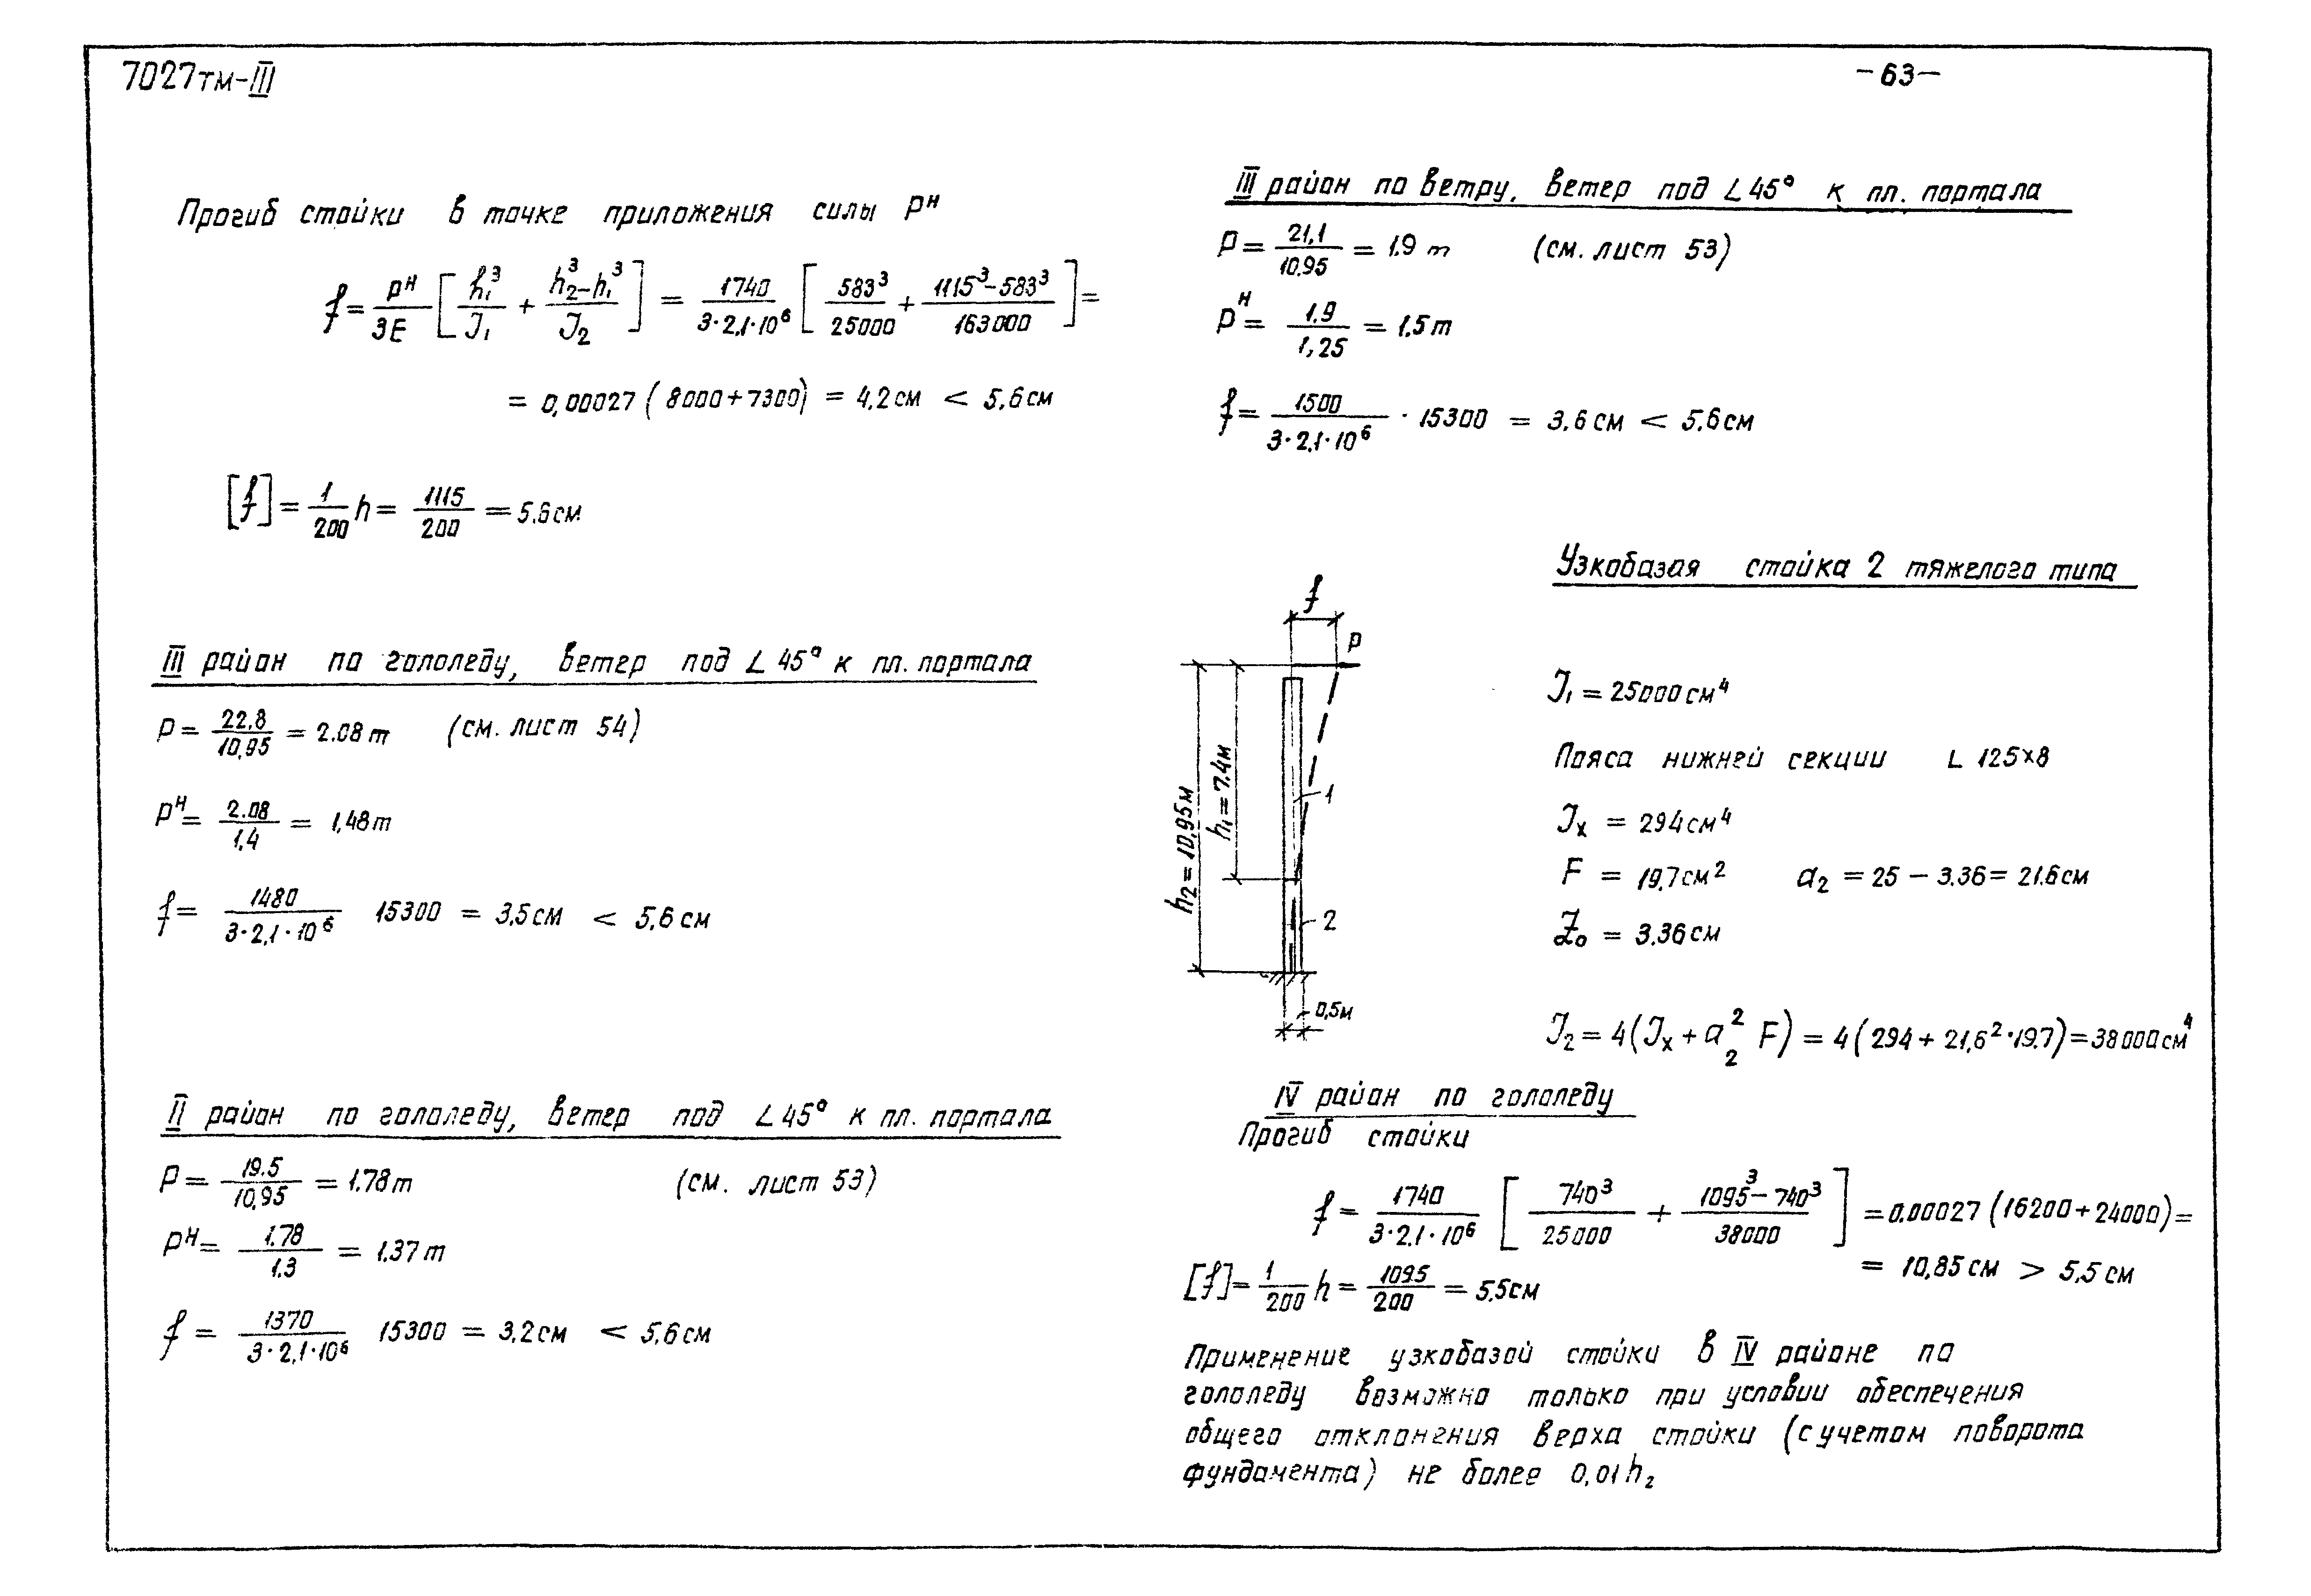 7027тм-III
-63-
Прогиб стойки в точке приложения силы Pᴴ
f = Pᴴ/3E [h₁³/J₁ + (h₂³-h₁³)/J₂] = 1740/(3·2,1·10⁶) [583³/25000 + (1115³-583³)/163000] =
= 0,00027 (8000+7300) = 4,2см < 5,6см
[f] = 1/200 h = 1115/200 = 5.6см
III район по гололеду, ветер под ∠45° к пл. портала
P = 22.8/10,95 = 2.08т (см. лист 54)
Pᴴ = 2.08/1.4 = 1,48т
f = 1480/(3·2,1·10⁶) 15300 = 3,5см < 5,6см
II район по гололеду, ветер под ∠45° к пл. портала
P = 19.5/10,95 = 1.78т (см. лист 53)
Pᴴ = 1.78/1.3 = 1.37т
f = 1370/(3·2,1·10⁶) 15300 = 3,2см < 5,6см
III район по ветру, ветер под ∠45° к пл. портала
P = 21,1/10.95 = 1.9 т (см. лист 53)
Pᴴ = 1.9/1,25 = 1.5т
f = 1500/(3·2,1·10⁶) · 15300 = 3,6см < 5,6см
Узкобазая стойка 2 тяжелого типа
f
P
h₂ = 10,95м
h₁ = 7.4м
1
2
0,5м
J₁ = 25000см⁴
Пояса нижней секции L 125×8
Jₓ = 294см⁴
F = 19,7см² a₂ = 25 - 3.36 = 21.6см
Z₀ = 3.36см
J₂ = 4(Jₓ + a₂² F) = 4(294 + 21,6²·19.7) = 38000см⁴
IV район по гололеду
Прогиб стойки
f = 1740/(3·2.1·10⁶) [740³/25000 + (1095³-740³)/38000] = 0.00027 (16200+24000) =
= 10,85см > 5,5см
[f] = 1/200 h = 1095/200 = 5,5см
Применение узкобазой стойки в IV районе по
гололеду возможно только при условии обеспечения
общего отклонения верха стойки (с учетом поворота
фундамента) не более 0,01h₂